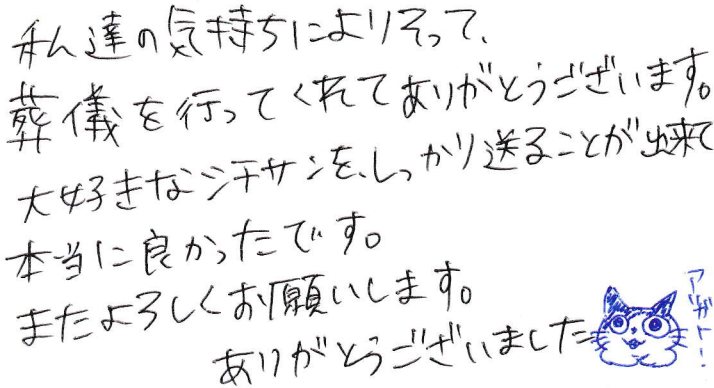 私達の気持ちによりそって、
葬儀を行ってくれてありがとうございます。
大好きなシチサンを、しっかり送ることが出来て
本当に良かったです。
またよろしくお願いします。
ありがとうございました
アガト!